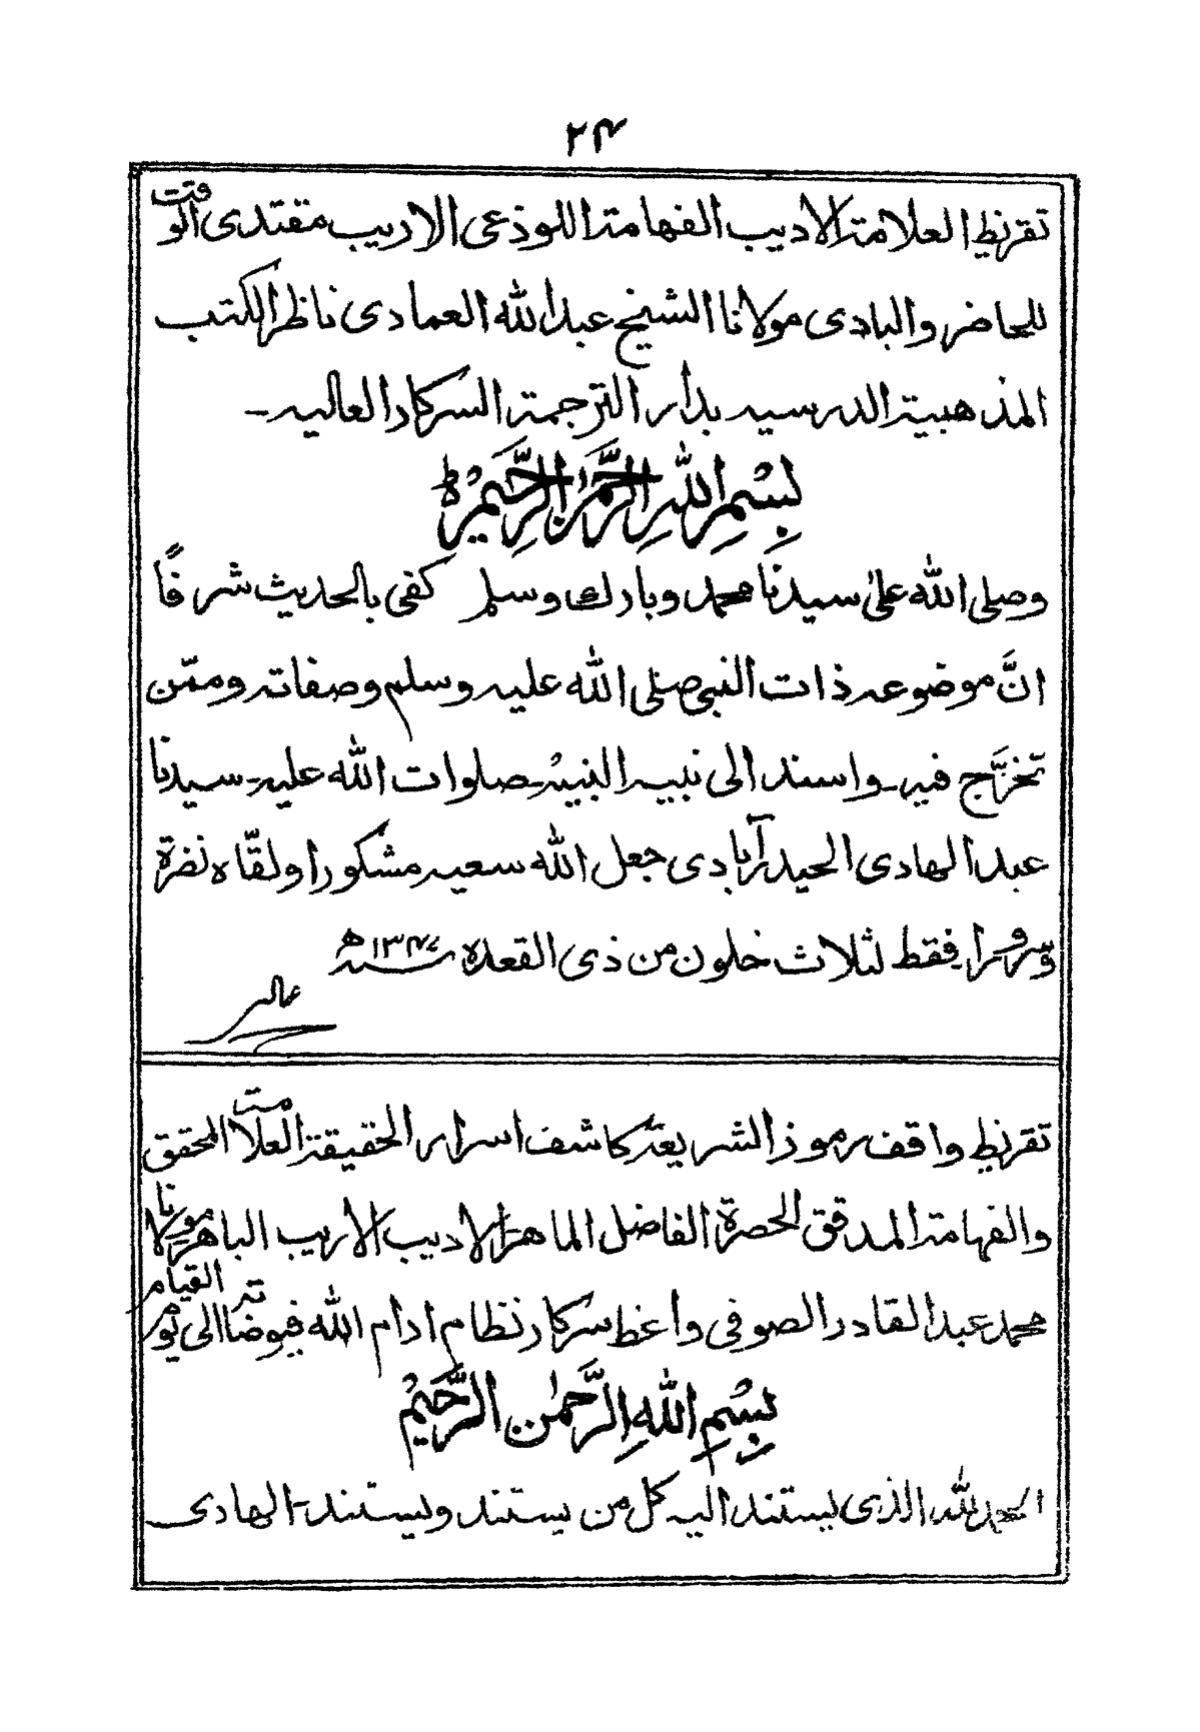 ۲۴
تقريظ العلامة الاديب الفهامة اللوذعى الاريب مقتدى الوقت
للحاضر والبادى مولانا الشيخ عبدالله العمادى ناظر الكتب
المذهبية الدرسيه بدار الترجمة السركار العاليه ـ
بِسْمِ اللهِ الرَّحْمٰنِ الرَّحِيْمِ ط
وصلى الله على سيدنا محمد وبارك وسلم كفى بالحديث شرفًا
انَّ موضوعه ذات النبى صلى الله عليه وسلم وصفاته وممّن
تخرَّج فيه ـ واسند الى نبيه النبيه ـ صلوات الله عليه ـ سيدنا
عبدالهادى الحيدرآبادى جعل الله سعيه مشكورا ولقّاه نضرة
وّسرورا ـ فقط لثلاث خلون من ذى القعده سنه ۱۳۴۷ھ
تقريظ واقف رموز الشريعة كاشف اسرار الحقيقة العلامة المحقق
والفهامة المدقق الحصرة الفاضل الماهر الاديب الأريب الباهر مولانا
محمد عبدالقادر الصوفى واعظ سركار نظام ادام الله فيوضاته الى يوم القيام
بِسْمِ اللهِ الرَّحْمٰنِ الرَّحِيْمِ
الحمد لله الذى يستند اليه كل من يستند ويستند ـ الهادى